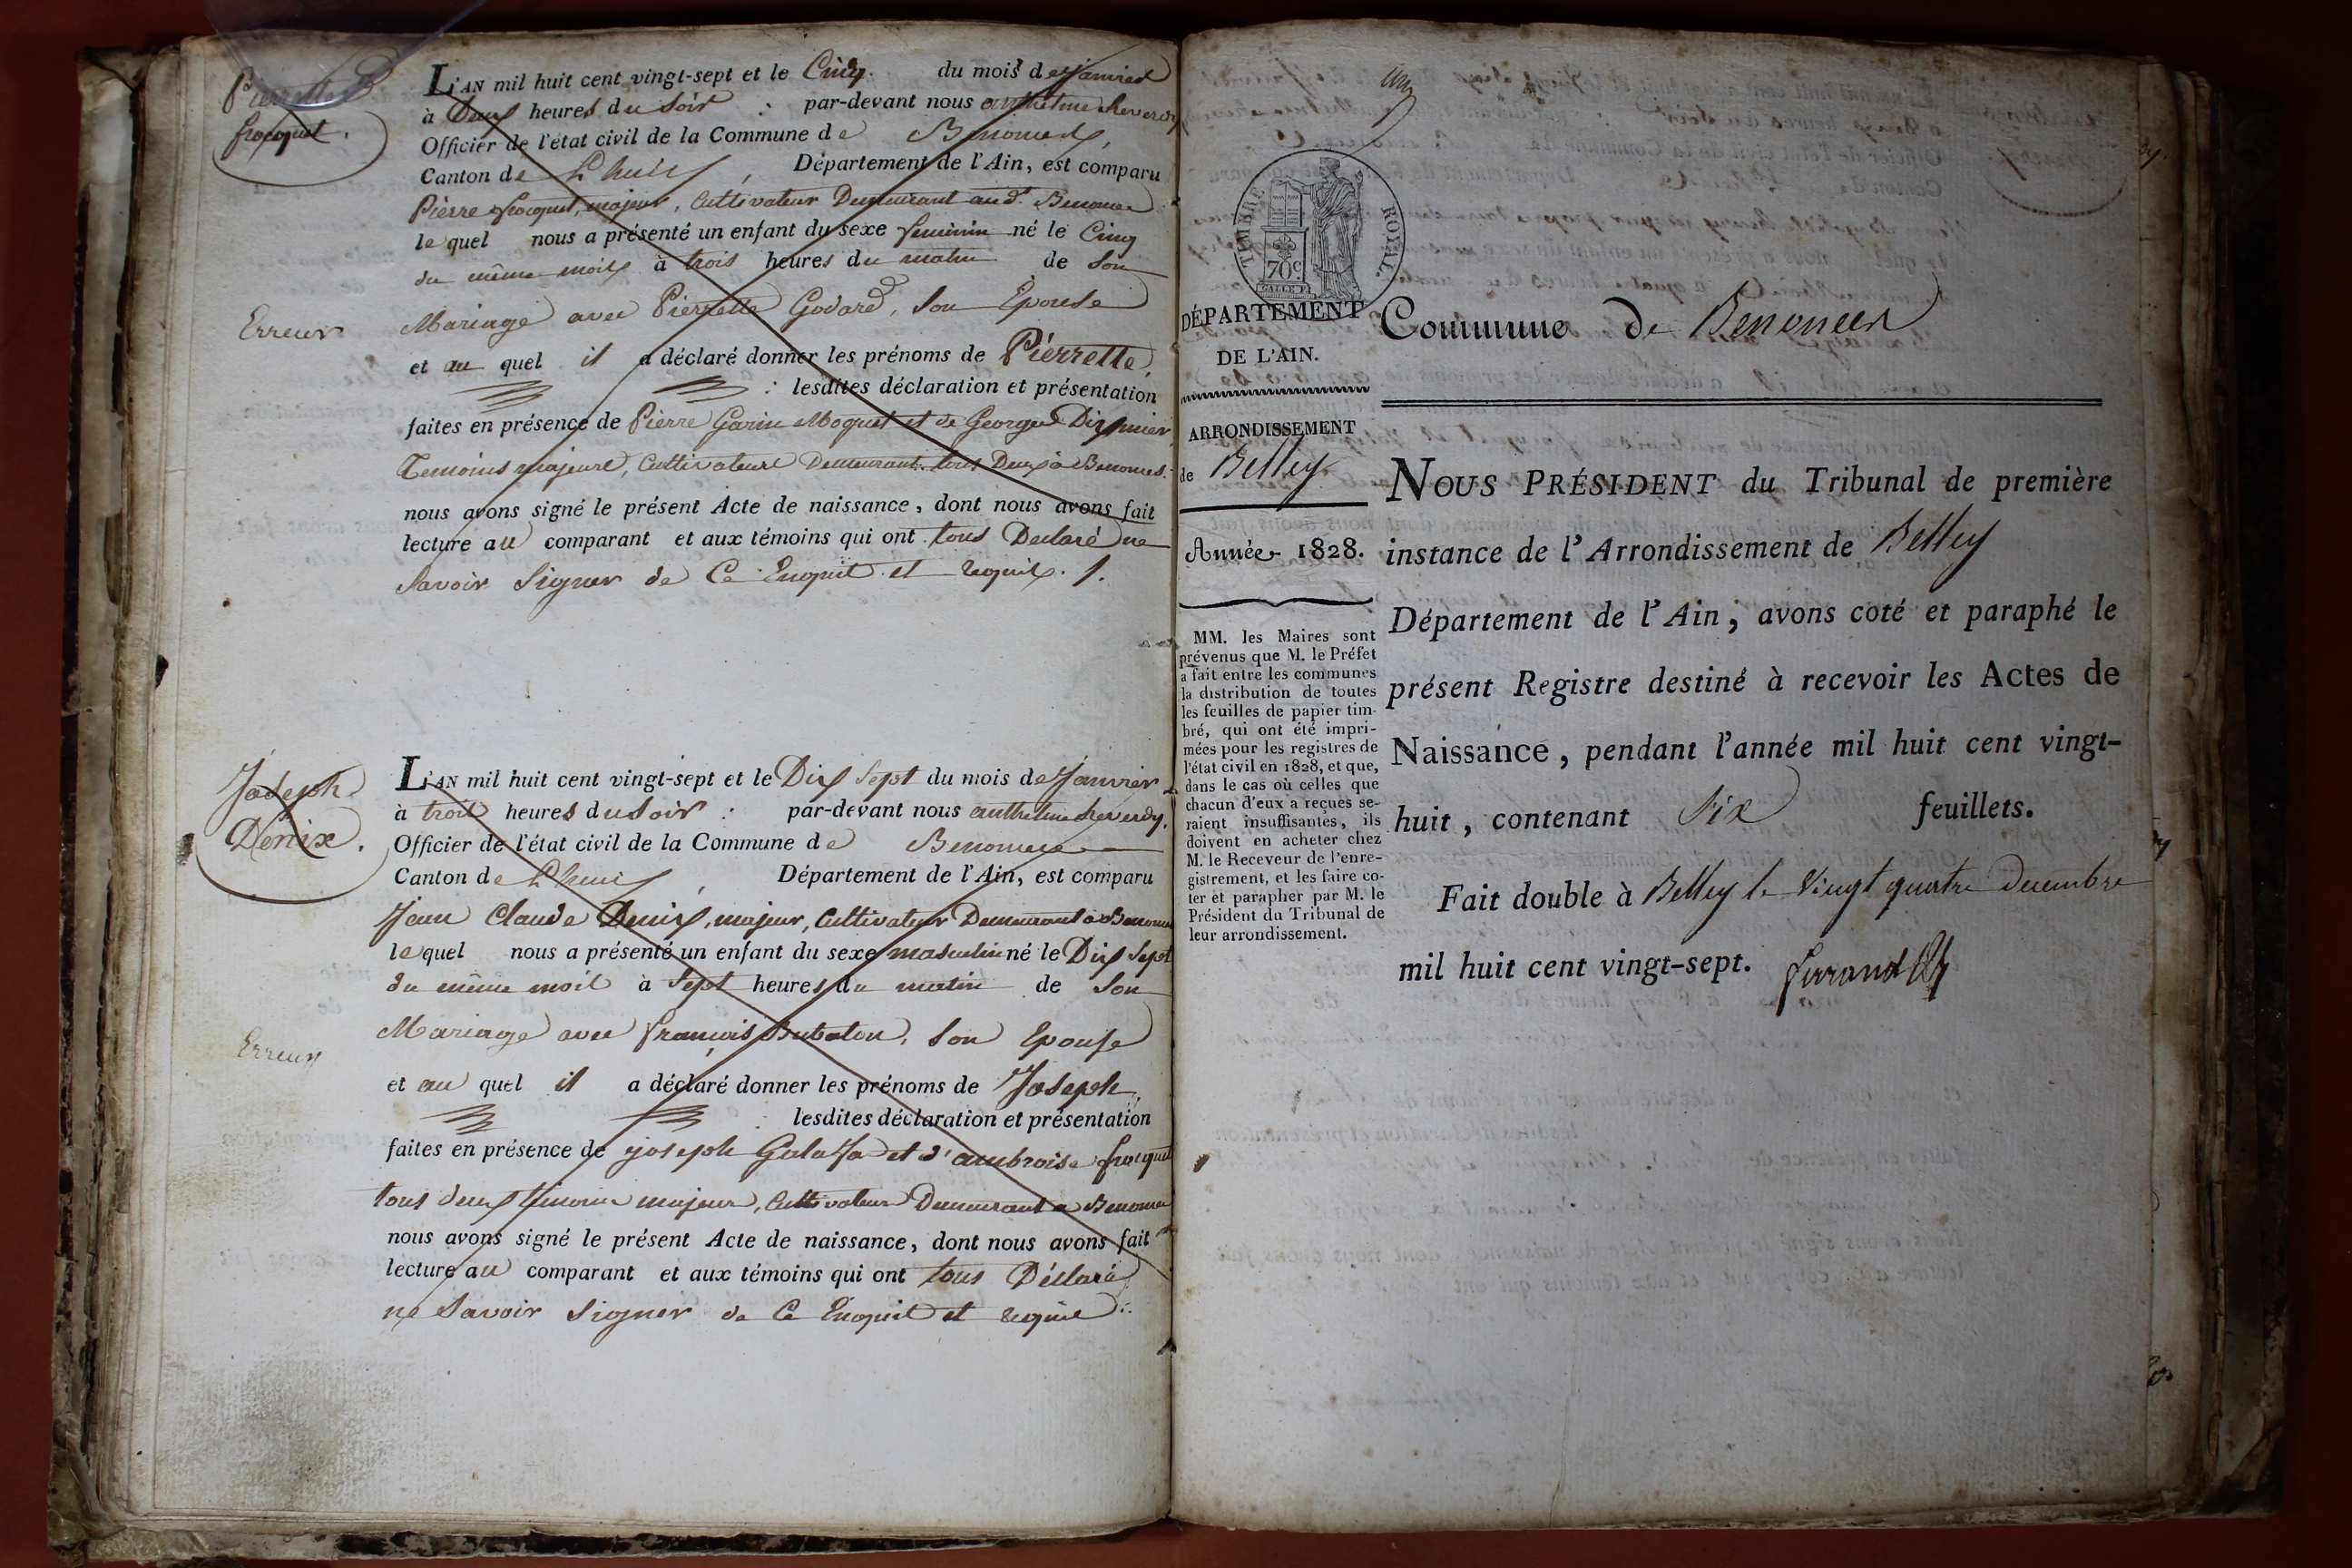 Pierrette
frocquet.
L'AN mil huit cent vingt-sept et le Cinq. du mois de janvier
à Deux heures du Soir : par-devant nous anthelme Reverdy
Officier de l'état civil de la Commune de Benonces,
Canton de Lhuis, Département de l'Ain, est comparu
Pièrre frocquet, majeur, Cultivateur Demeurant aud.t Benonce
le quel nous a présenté un enfant du sexe feminin né le Cinq
du même mois à trois heures du matin de Son
Mariage avec Pierrette Godard, Son Epouse
Erreur
et au quel il a déclaré donner les prénoms de Piérrette,
: lesdites déclaration et présentation
faites en présence de Pierre Garin Moquet et de George
Temoins majeurs, Cultivateurs Demeurant tous Deux à Benonces.
nous avons signé le présent Acte de naissance, dont nous avons fait
lecture au comparant et aux témoins qui ont tous Declaré ne
Savoir Signer de Ce Enquit et requis.
Joseph
Denix.
L'AN mil huit cent vingt-sept et le Dix Sept du mois de Janvier
à trois heures du soir : par-devant nous anthelme Reverdy,
Officier de l'état civil de la Commune de Benonces
Canton de Lhuis, Département de l'Ain, est comparu
Jean Claude Denix, majeur, Cultivateur Demeurant à Benonce
le quel nous a présenté un enfant du sexe masculin né le Dix Sept
du même mois à Sept heures du matin de Son
Mariage avec françois Son Epouse
Erreur
et au quel il a déclaré donner les prénoms de Joseph,
: lesdites déclaration et présentation
faites en présence de joseph et d'ambroise frocquet
tous deux témoins majeurs, Cultivateurs Demeurant a Benonce
nous avons signé le présent Acte de naissance, dont nous avons fait
lecture au comparant et aux témoins qui ont tous Déclaré
ne Savoir Signer de Ce Enquit et requis
un
TIMBRE ROYAL.
70c.
GALLE F.
DÉPARTEMENT
DE L'AIN.
ARRONDISSEMENT
de Belley
Année 1828.
MM. les Maires sont
prévenus que M. le Préfet
a fait entre les communes
la distribution de toutes
les feuilles de papier tim-
bré, qui ont été impri-
mées pour les registres de
l'état civil en 1828, et que,
dans le cas où celles que
chacun d'eux a reçues se-
raient insuffisantes, ils
doivent en acheter chez
M. le Receveur de l'enre-
gistrement, et les faire co-
ter et parapher par M. le
Président du Tribunal de
leur arrondissement.
Commune de Benonces
NOUS PRÉSIDENT du Tribunal de première
instance de l'Arrondissement de Belley
Département de l'Ain, avons coté et paraphé le
présent Registre destiné à recevoir les Actes de
Naissance, pendant l'année mil huit cent vingt-
huit, contenant Six feuillets.
Fait double à Belley le Vingt quatre Decembre
mil huit cent vingt-sept.